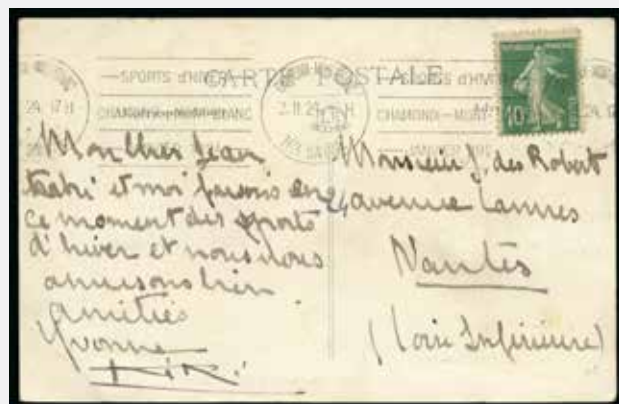 SPORTS D'HIVER
CHAMONIX-MONT-BLANC
CARTE POSTALE
REPUBLIQUE FRANCAISE
10
Mon cher Jean
et moi faisons en
ce moment des sports
d'hiver et nous nous
amusons bien
amitiés
Yvonne
Monsieur J. des Robert
24 avenue Lannes
Nantes
(Loire Inférieure)